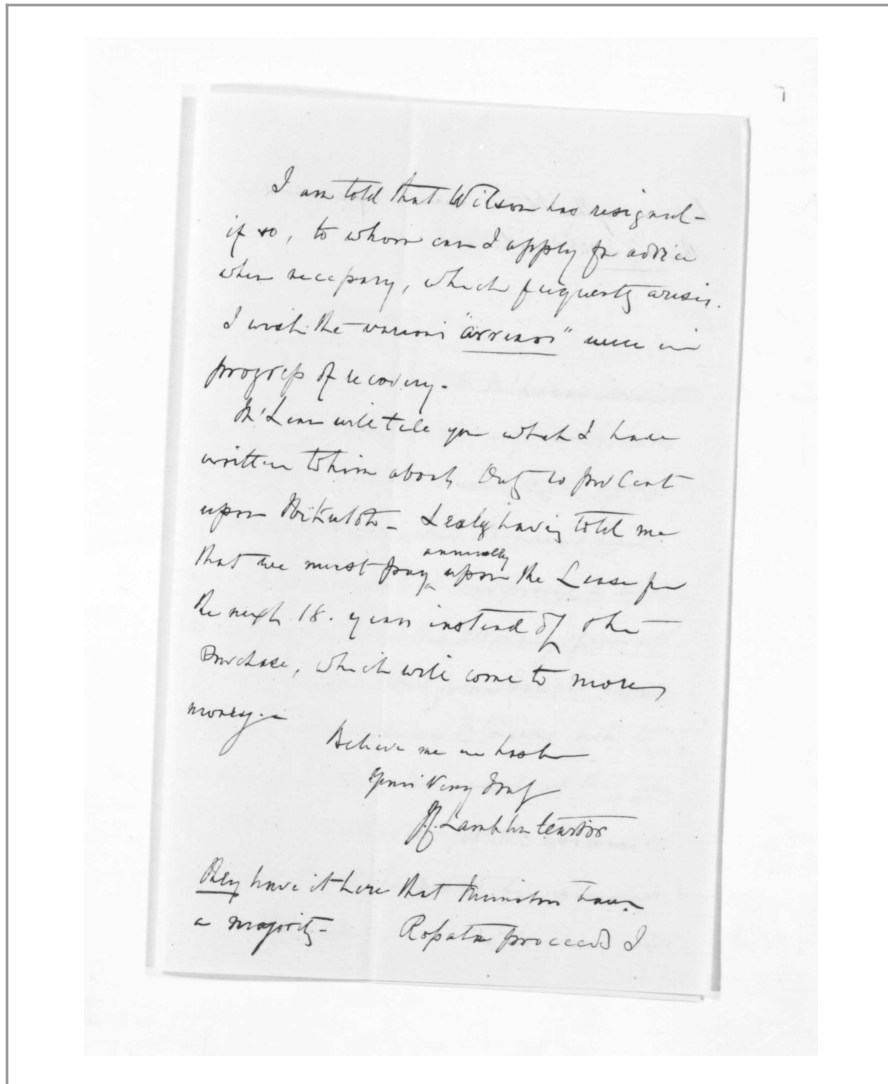 I am told that Wilson has resigned -
if so, to whom can I apply for advice
when necessary, which frequently arises.
I wish the various "arrears" were in
progress of recovery -
McLean will tell you what I have
written to him about 10 per Cent
upon having told me
that we must pay annually upon the Lease for
the next 18. years instead of the
Purchase, which will come to more
money. -
Believe me in haste
Yours Very Truly
They have it here that Ministers have
a majority - Ropata proceeds I